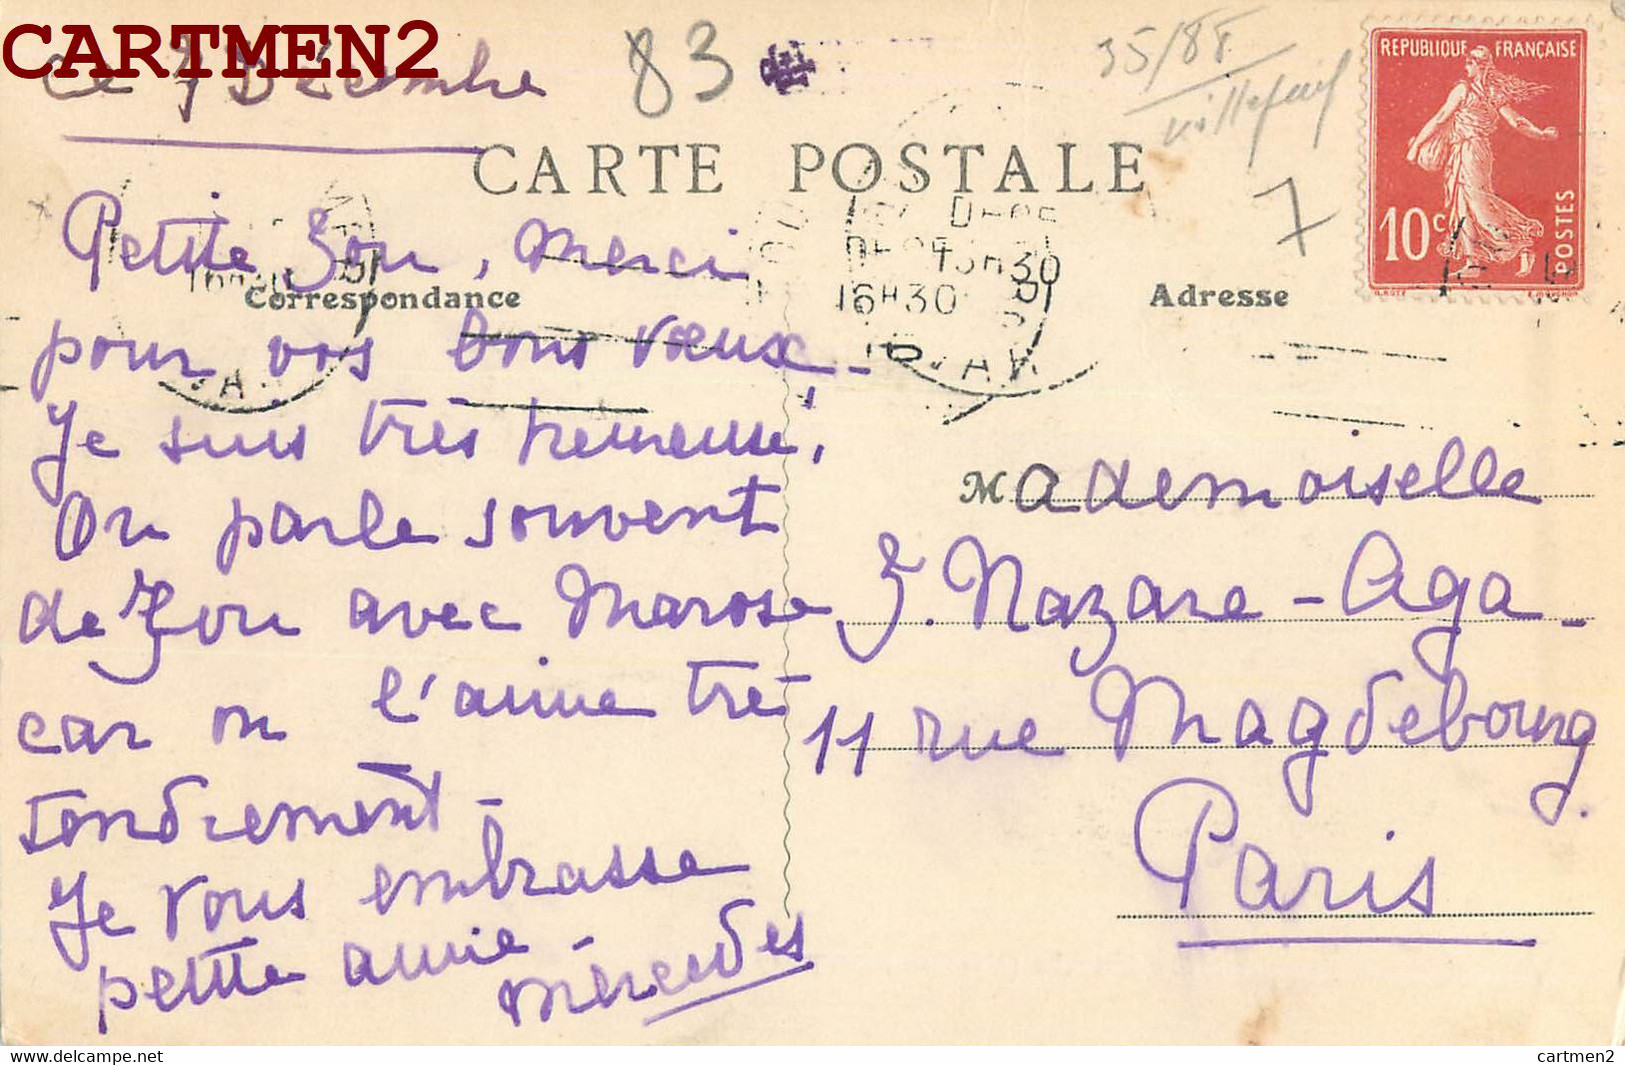 CARTMEN2
ce 7 Décembre
83
35/88
7
REPUBLIQUE FRANÇAISE
10 c
POSTES
CARTE POSTALE
Correspondance
Adresse
16H30
Petite Zou, Merci
pour vos bons vœux -
Je suis très heureuse,
On parle souvent
de Zou avec Marose
car on l'aime trè
tendrement -
Je vous embrasse
petite amie -
Mércedes
Mademoiselle
Z. Nazare-Aga -
11 rue Magdebourg.
Paris
https://www.delcampe.net
cartmen2